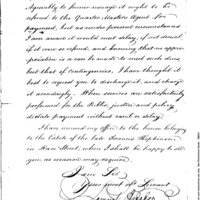 Agreeably to former usage it ought to be
referred to the Quarter Masters Agent for
payment, but as under present circumstances
I am aware it would meet delay, if not denial,
if it were so refered, and knowing that no appro-
priation is or can be made to meet such dues,
but that of contingencies, I have thought it
best to request you to discharge it, and charge
it accordingly. When services are satisfactorily
performed for the Public, justice and policy
dictate payment without cavil or delay.
I have removed my office to the house belonging
to the Estate of the late
in Race Street, where I shall be happy to see
you, as occasion may require.
I am Sir
Your most obt Servant